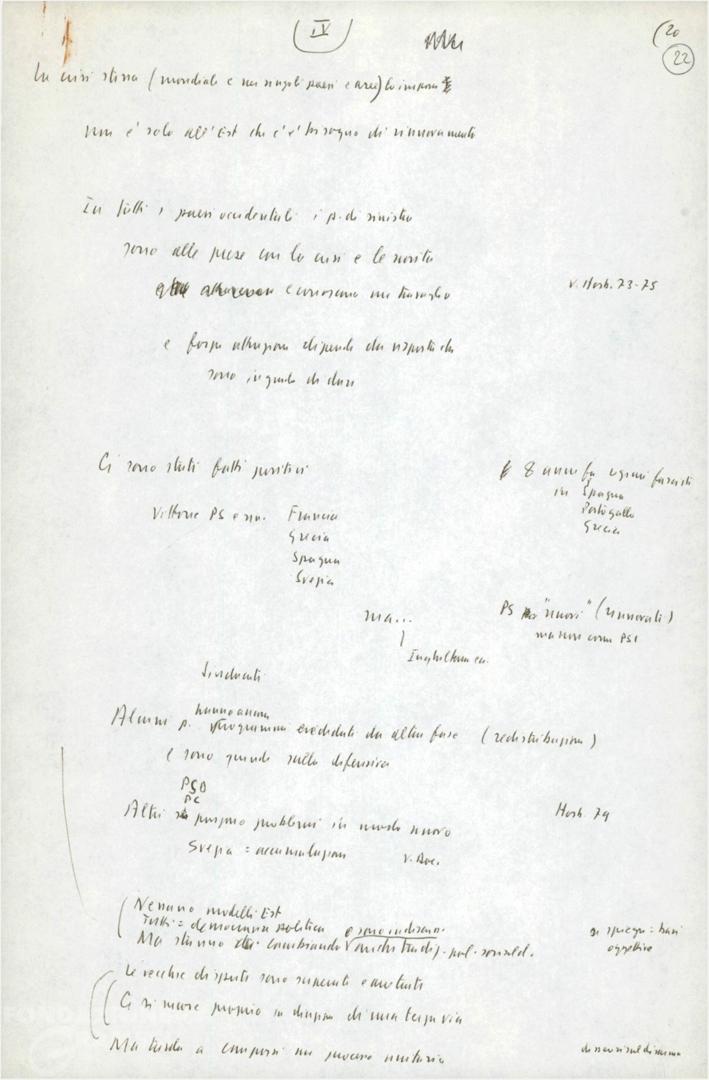 IV
20
22
La crisi stessa (mondiale e nei singoli paesi e aree) lo impone
non è solo all'Est che c'è bisogno di rinnovamento
In tutti i paesi occidentali i p. di sinistra
sono alle prese con la crisi e le novità
e conoscono un travaglio
v. Hosb. 73-75
e forza attrazione dipende da risposte che
sono in grado di dare
Ci sono stati fatti positivi
8 anni fa regimi fascisti
in Spagna
Portogallo
Grecia
Vittorie PS e sin. Francia
Grecia
Spagna
Svezia
ma...
PS "nuovi" (rinnovati)
ma non come PSI
Inghilterra ec.
Sindacati
Alcuni p. hanno ancora
programmi ereditati da altra fase (redistribuzione)
e sono quindi sulla difensiva
PSD
PC
Altri pongono problemi in modo nuovo
Hosb. 79
Svezia = accumulazione
Nessuno modelli Est
Tutti = democrazia politica e sono in disarmo
Ma stanno cambiando anche tradiz. pol. sociald.
si spiega: basi
oggettive
Le vecchie dispute sono superate
Ci si muove proprio in direzione di una terza via
Ma tarda a comporsi un processo unitario